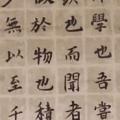 學也吾嘗
疾也而聞者
假於物也積
無以至千